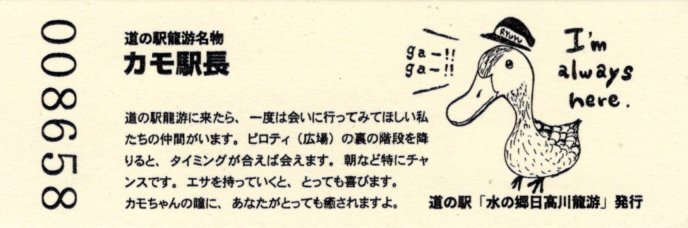 008658
道の駅龍游名物
カモ駅長
道の駅龍游に来たら、一度は会いに行ってみてほしい私
たちの仲間がいます。ピロティ（広場）の裏の階段を降
りると、タイミングが合えば会えます。朝など特にチャ
ンスです。エサを持っていくと、とっても喜びます。
カモちゃんの瞳に、あなたがとっても癒されますよ。
ga-!!
ga-!!
RYUYU
I'm
always
here.
道の駅「水の郷日高川龍游」発行